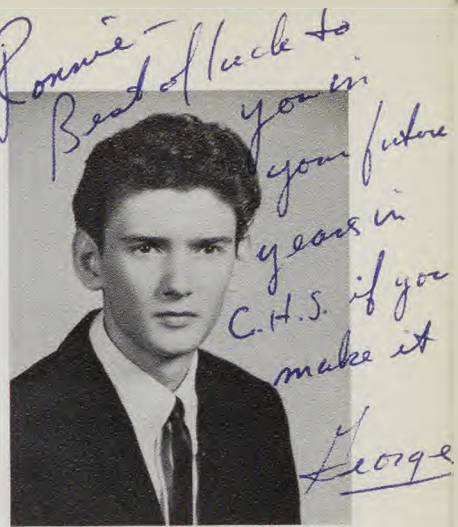 Ronnie-
Best of luck to
you in
your future
years in
C.H.S. if you
make it
George